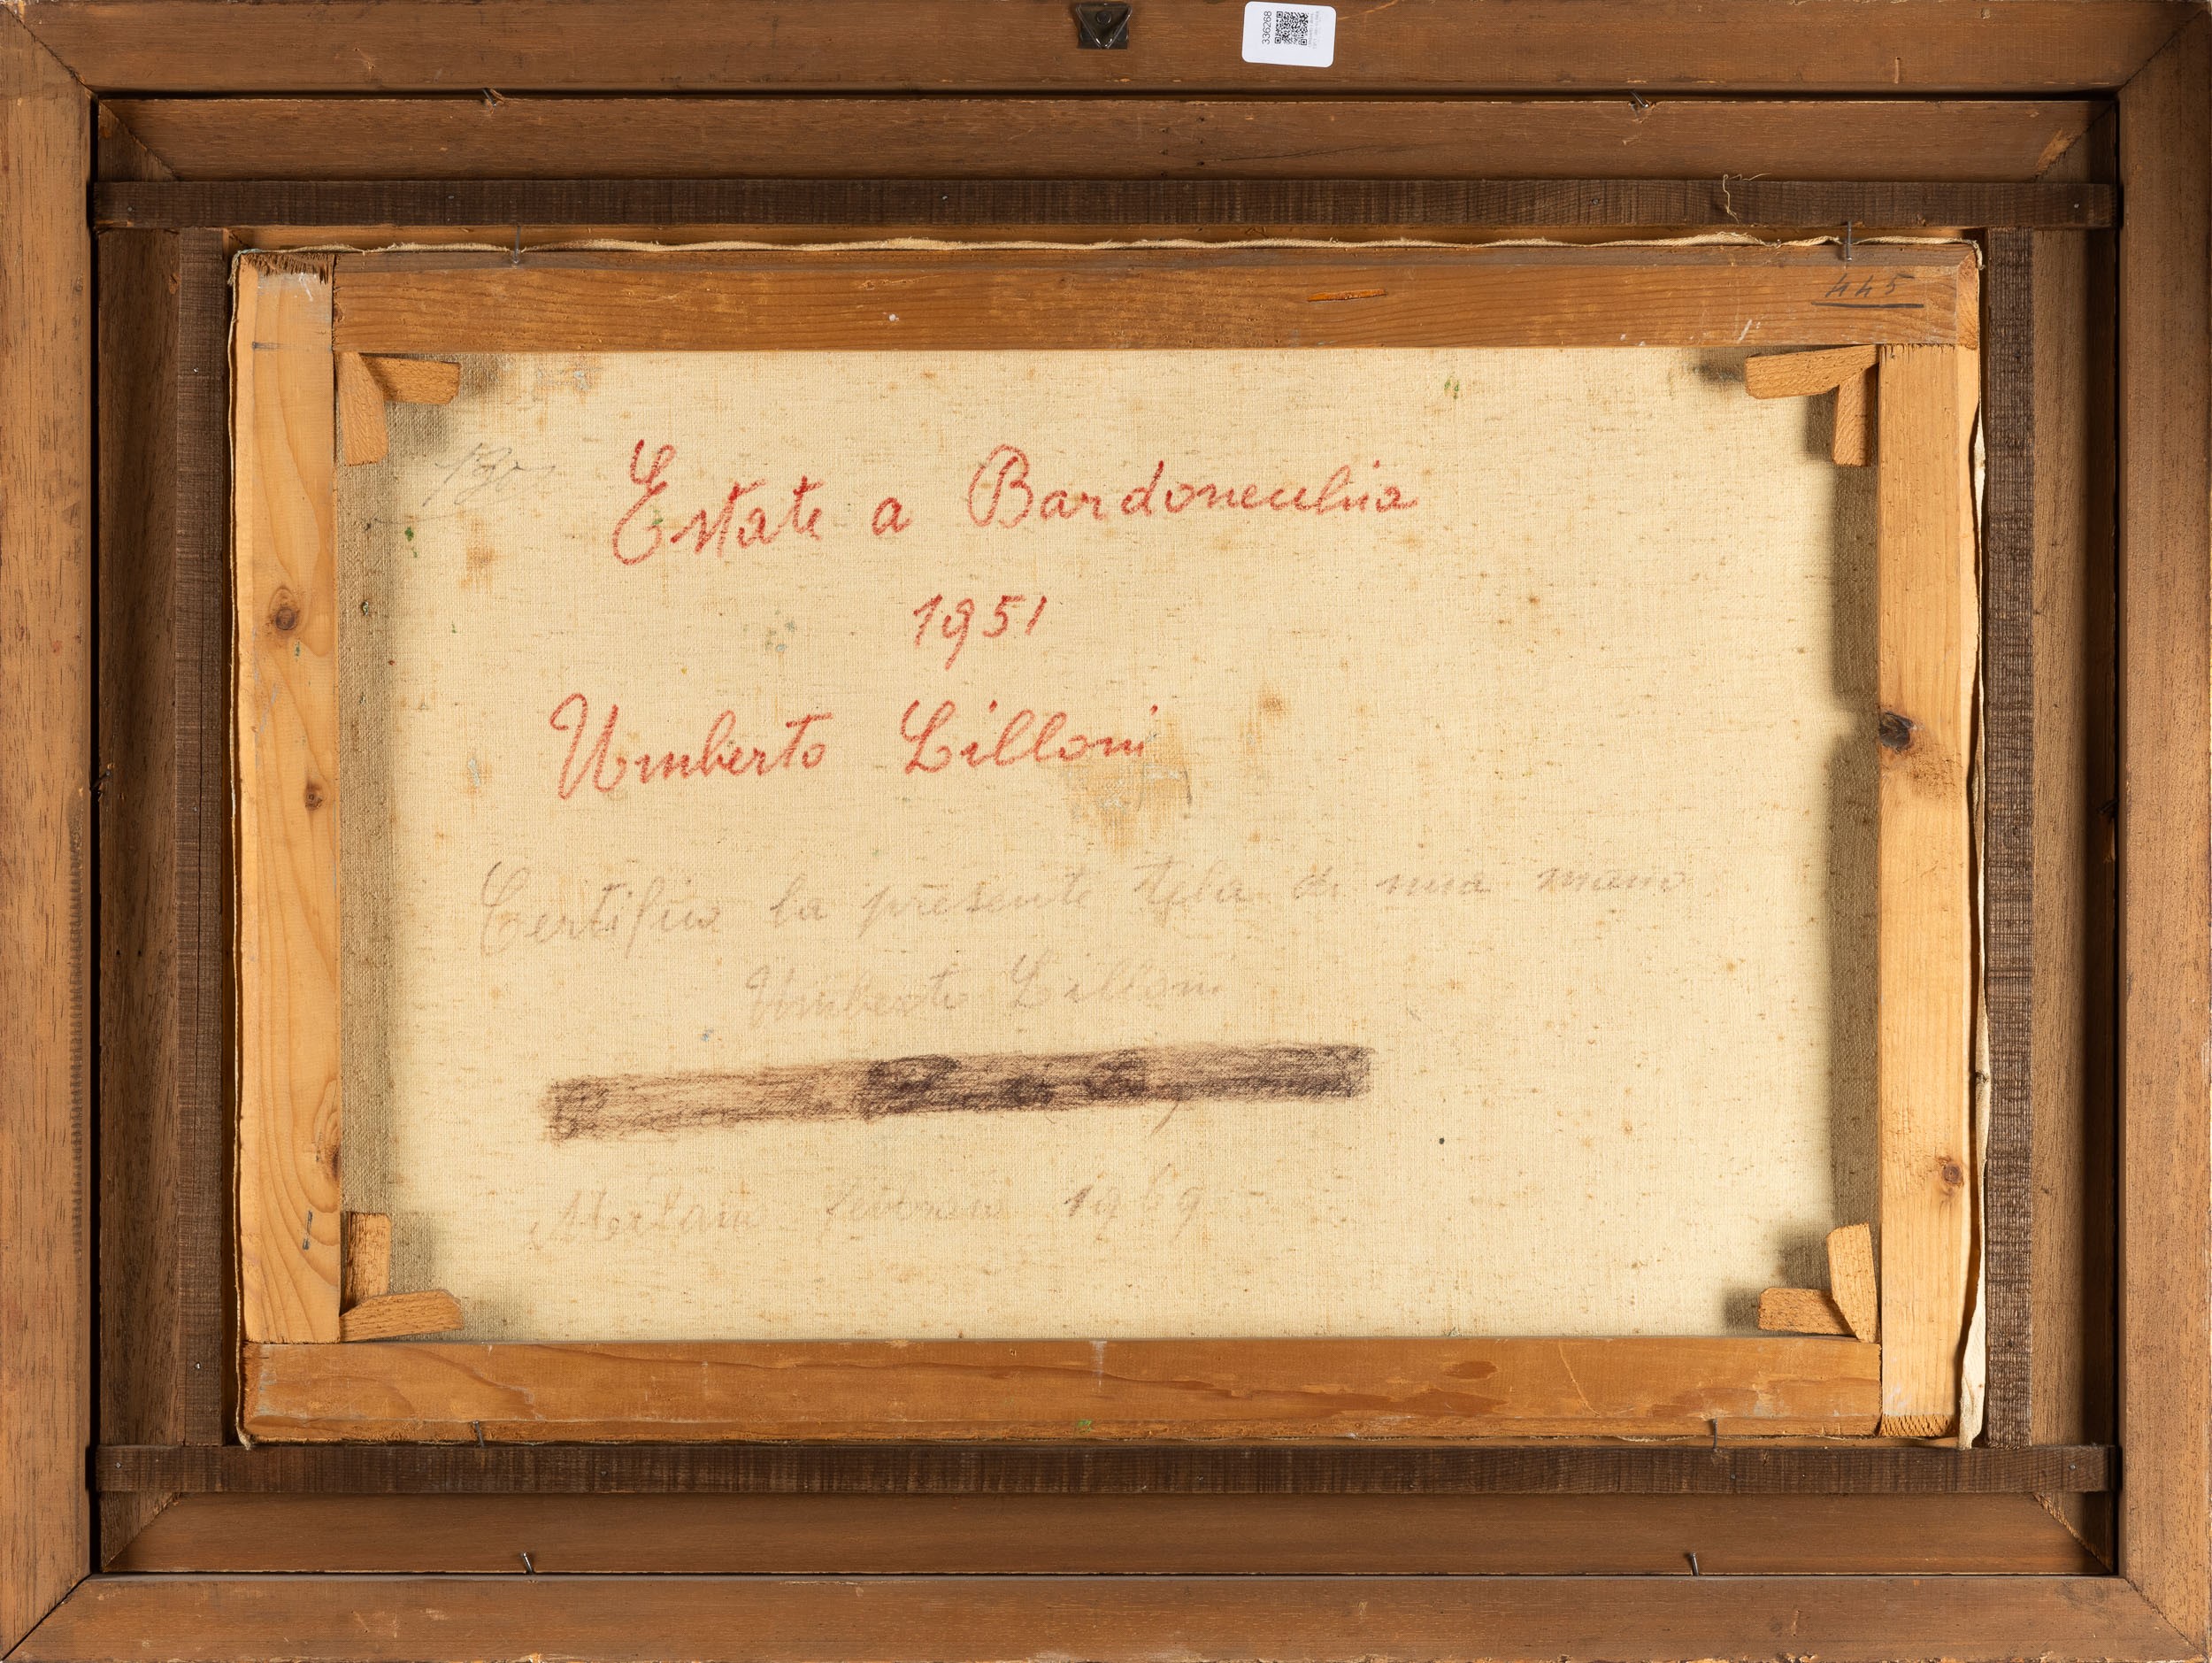 336268
445
Estate a Bardonecchia
1951
Umberto Lilloni
Certifico la presente tela di mia mano
Umberto Lilloni
febbraio 1969